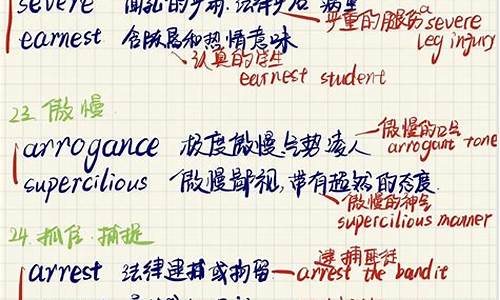 severe
严重的腿伤 a severe leg injury
earnest 含庄严和热情意味
认真的学生
earnest student
23. 傲慢
arrogance 极度傲慢,气势凌人
傲慢的口气
arrogant tone
supercilious 傲慢鄙视,带有超然的态度
傲慢的神气
supercilious manner
24. 抓住、捕捉
arrest 法律逮捕或拘留
逮捕匪徒
arrest the bandit